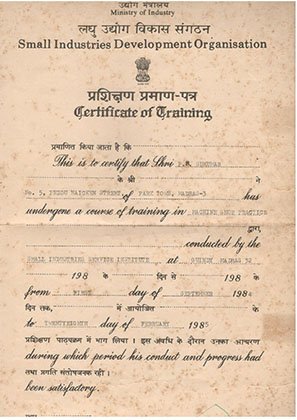 उद्योग मंत्रालय
Ministry of Industry
लघु उद्योग विकास संगठन
Small Industries Development Organisation
प्रशिक्षण प्रमाण-पत्र
Certificate of Training
प्रमाणित किया जाता है कि
This is to certify that Shri P.S. SUKUMAR
के श्री
No. 5, PEDDU NAICKEN STREET, of PARK TOWN, MADRAS-3 has
undergone a course of training in MACHINE SHOP PRACTICE
द्वारा,
conducted by the
SMALL INDUSTRIES SERVICE INSTITUTE at GUINDY MADRAS 32
198 के दिन से 198 के
from FIRST day of SEPTEMBER 1984
दिन तक, में आयोजित के
to TWENTYEIGHTH day of FEBRUARY 1985
प्रशिक्षण पाठ्यक्रम में भाग लिया। इस अवधि के दौरान उनका आचरण
during which period his conduct and progress had
तथा प्रगति संतोषजनक रही।
been satisfactory.